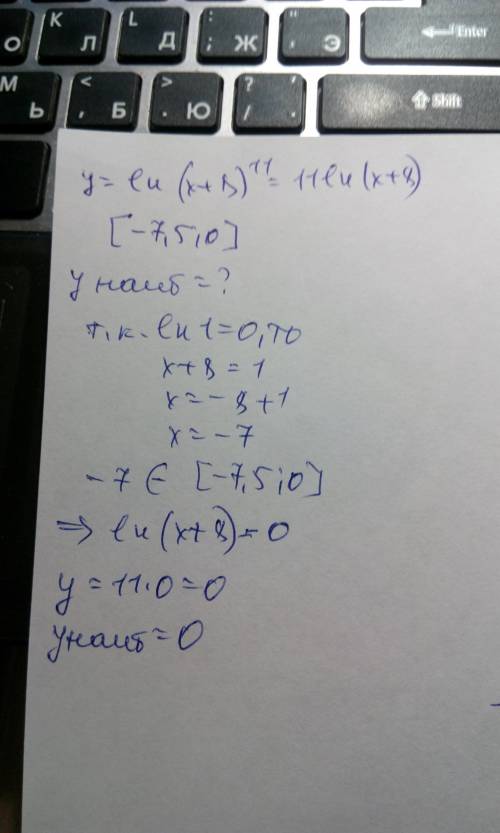 К Л
L Д
: ; Ж
" ' Э
Enter
О
М Ь
< , Б
> . Ю
? / .
Shift
y = ln (x+8)^11 = 11 ln (x+8)
[-7,5;0]
y наиб = ?
т.к. ln 1 = 0, то
x+8 = 1
x = -8+1
x = -7
-7 ∈ [-7,5;0]
⇒ ln (x+8) = 0
y = 11·0 = 0
y наиб = 0